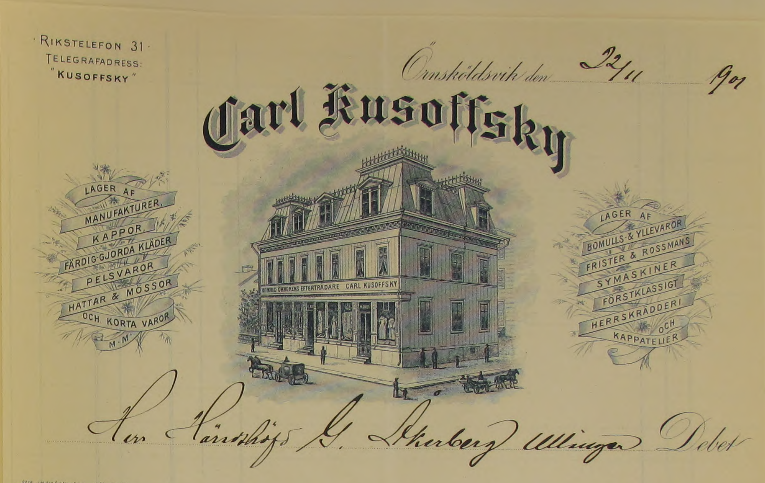 RIKSTELEFON 31.
TELEGRAFADRESS:
"KUSOFFSKY"
Örnsköldsvik den 22/11 1901
Carl Kusoffsky
LAGER AF
MANUFAKTURER,
KAPPOR,
FÄRDIGGJORDA KLÄDER
PELSVAROR
HATTAR & MÖSSOR
OCH KORTA VAROR
M.M.
EFTERTRÄDARE CARL KUSOFFSKY
LAGER AF
BOMULLS & YLLEVAROR
FRISTER & ROSSMANS
SYMASKINER
FÖRSTKLASSIGT
HERRSKRÄDDERI
OCH
KAPPATELIER
Herr G. Åkerberg Ullånger Debet